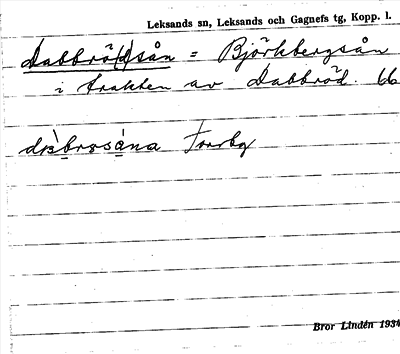 Leksands sn, Leksands och Gagnefs tg, Kopp. l.
Dabbrö(d)sån = Björkbergsån
i trakten av Dabbröd. 66
Torrby
Bror Lindén 1934